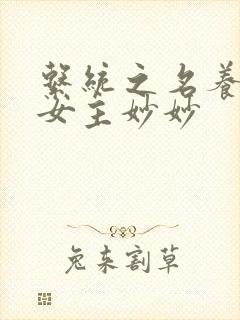 繫統之名養
女主妙妙
兔来割草